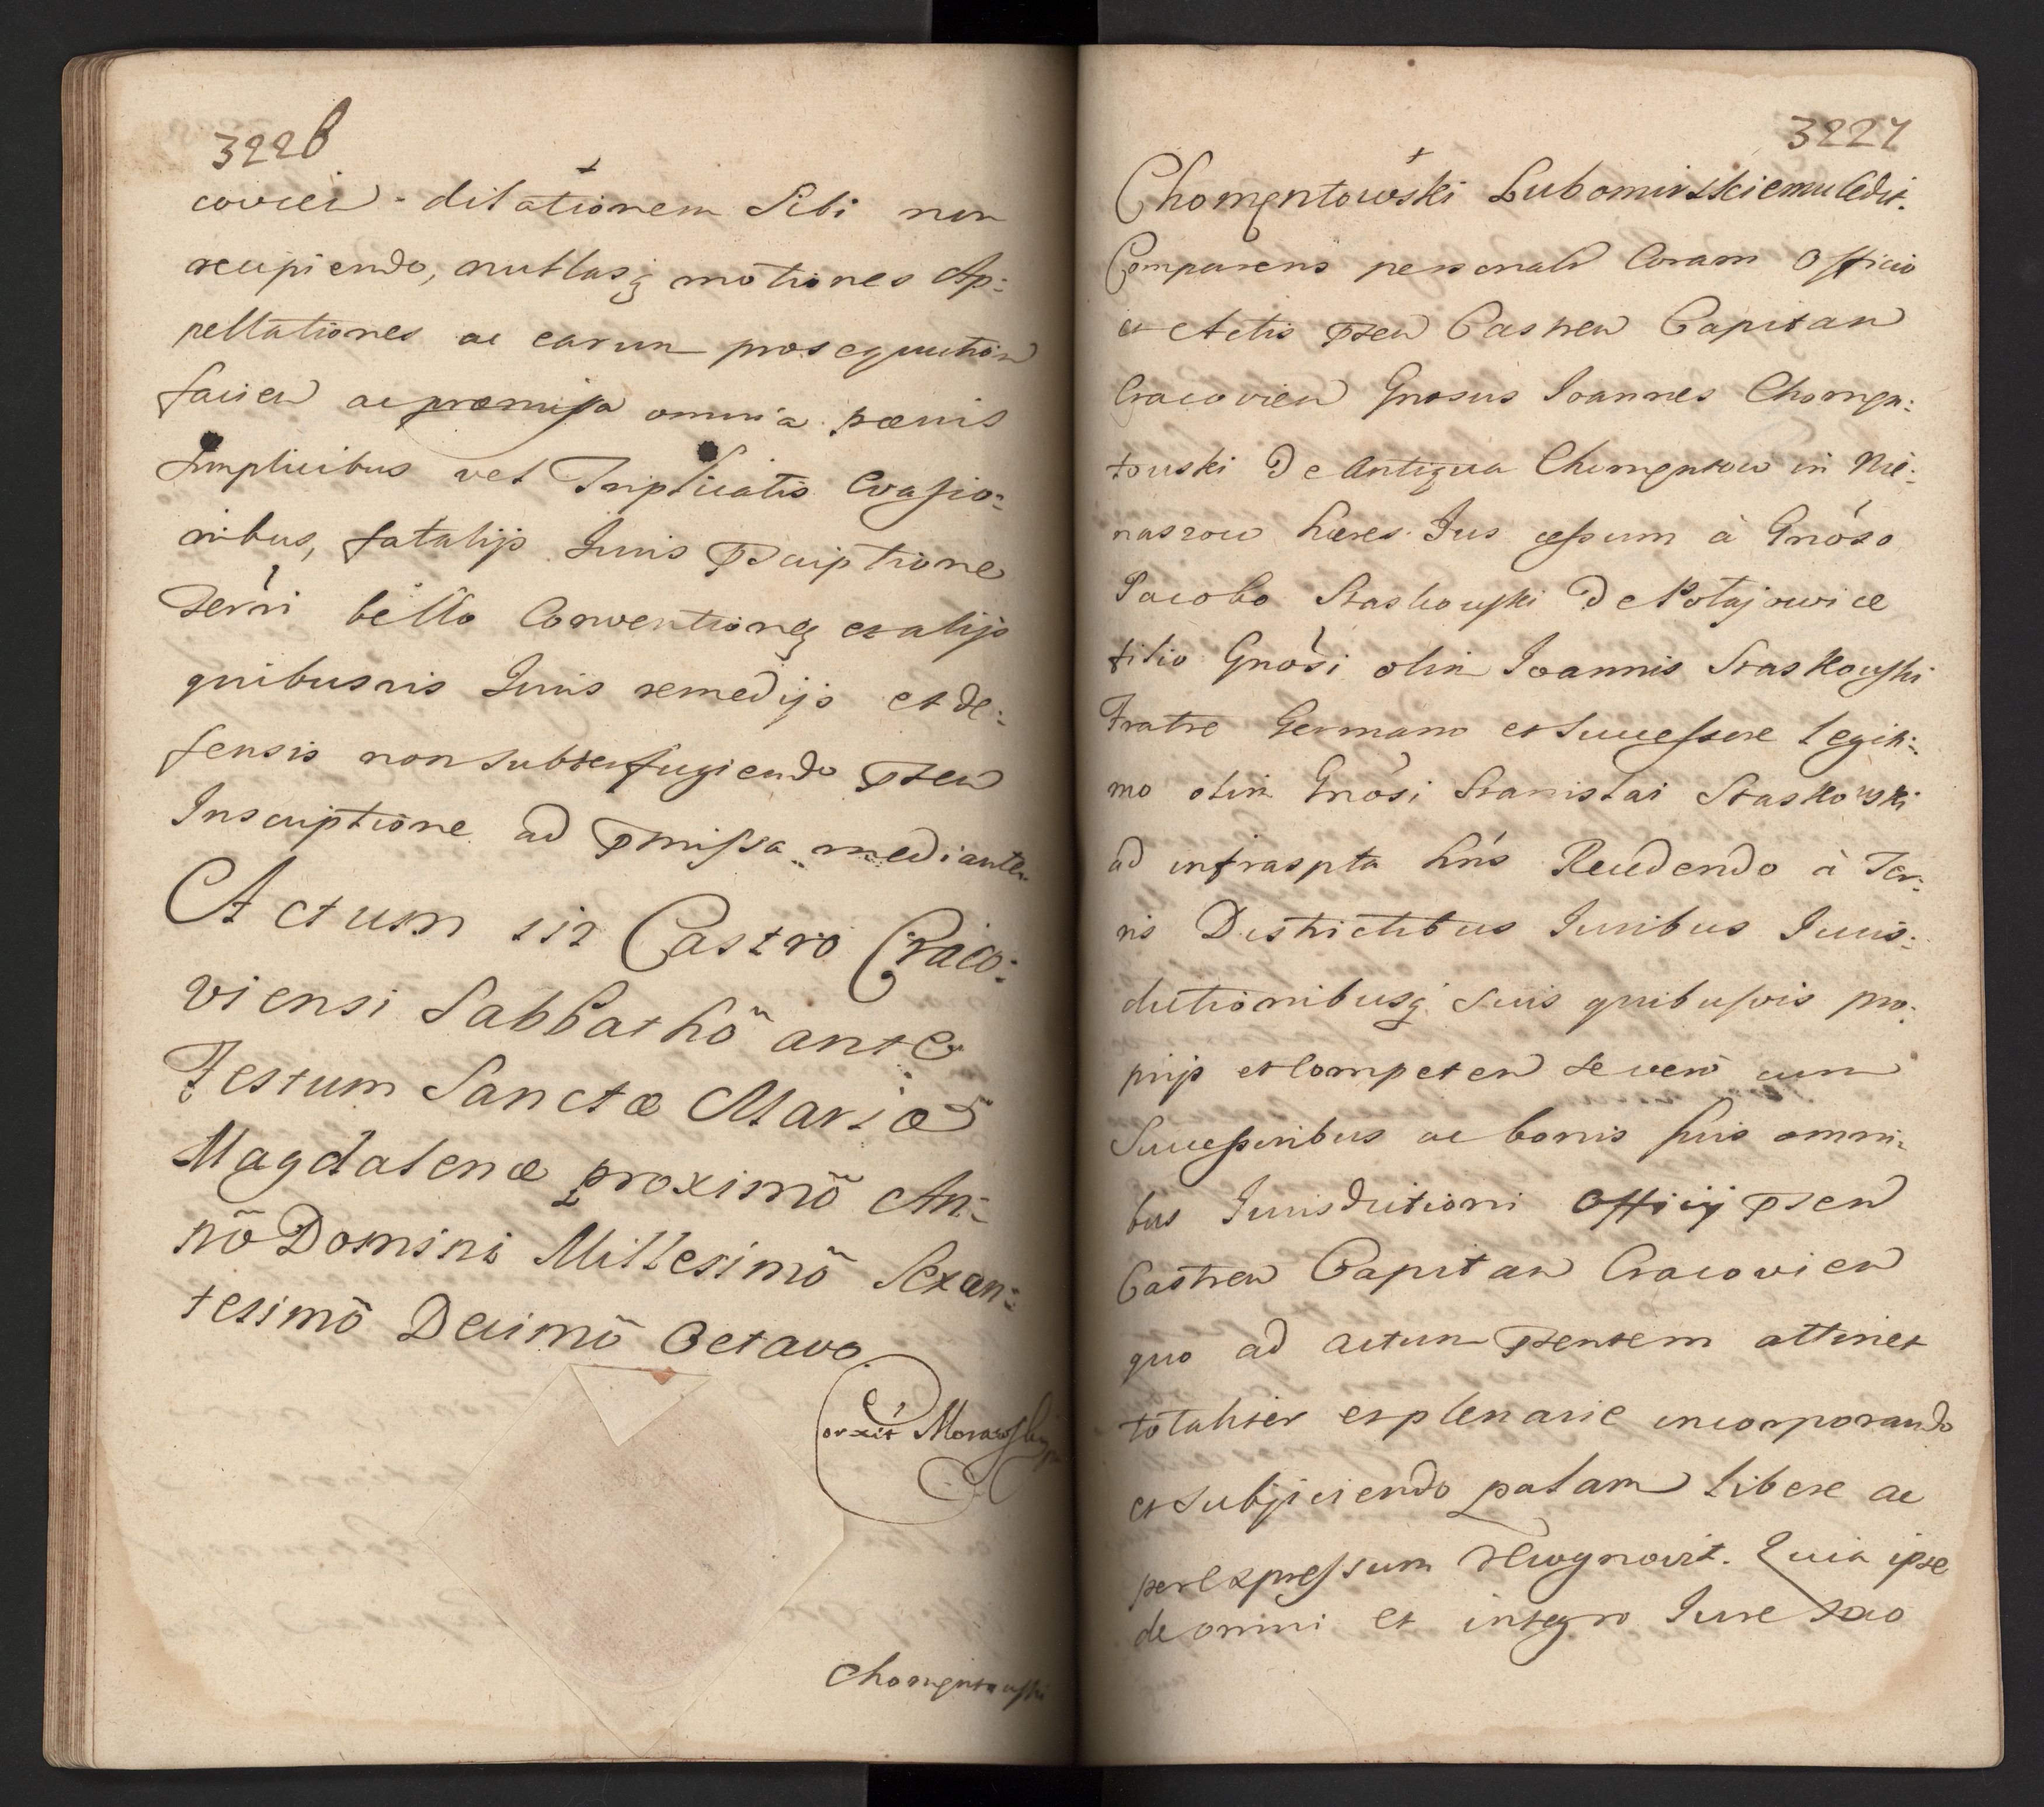 3226
covien dilationem Sibi non
recipiendo, nullasq motiones Ap:
pellationes ac earum prosequution
facien ac præmissa omnia pœnis
Simplicibus vel Triplicatis Evasio:
nibus, fatalijs Juris Pscriptione
Terrri bello Conventioneq et alijs
quibusvis Juris remedijs et de:
fensis non subterfugiendo Psen
Inscriptione ad Pmissa mediante.
Actum in Castro Craco:
viensi Sabbathô ante
Festum Sanctæ Mariæ
Magdalenæ proximô An:
nô Domini Millesimô Sexcen:
tesimô Decimô Octavo
Corxit Morawski
Chomentowski
3227
Chomentowski Lubomirskiemu Cedit.
Comparens personalr Coram Officio
et Actis Psen Castren Capitan
Cracovien Gnosus Joannes Chomen:
towski De Antiqua Chomentow in Nie:
naszow hæres Jus cessum à Gnóso
Jacobo Staskowski De Potajowice
filio Gnosi olim Joannis Staskowski
Fratre Germano et Successore legiti:
mo olim Gnosi Stanislai Staskowski
ad infraspta hns Recedendo à Ter:
ris Districtibus Juribus Juris:
dictionibusq suis quibusvis pro:
prijs et Competen se vero cum
Successoribus ac bonis suis omni:
bus Jurisdictioni Officij Psen
Castren Capitan Cracovien
quo ad actum Psentem attinet
totaliter et plenarie incorporando
et subjiciendo palam libere ac
per expressum recognovit. Quia ipse
de omni et integro Jure suo